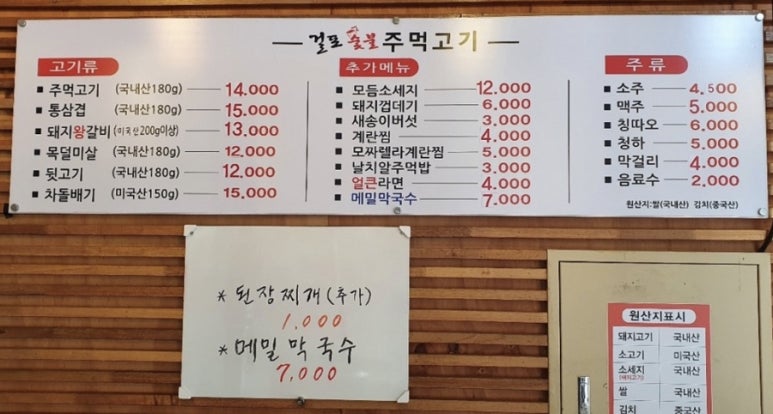 걸포 숯불 주먹고기
고기류
주먹고기 (국내산180g) 14.000
통삼겹 (국내산180g) 15.000
돼지왕갈비 (미국산200g이상) 13.000
목덜미살 (국내산180g) 12.000
뒷고기 (국내산180g) 12.000
차돌배기 (미국산150g) 15.000
추가메뉴
모듬소세지 12.000
돼지껍데기 6.000
새송이버섯 3.000
계란찜 4.000
모짜렐라계란찜 5.000
날치알주먹밥 3.000
얼큰라면 4.000
메밀막국수 7.000
주류
소주 4.500
맥주 5.000
칭따오 6.000
청하 5.000
막걸리 4.000
음료수 2.000
원산지:쌀(국내산) 김치(중국산)
* 된장찌개 (추가)
1,000
* 메밀막국수
7,000
원산지표시
돼지고기 국내산
소고기 미국산
소세지 국내산
(돼지고기)
쌀 국내산
김치 중국산